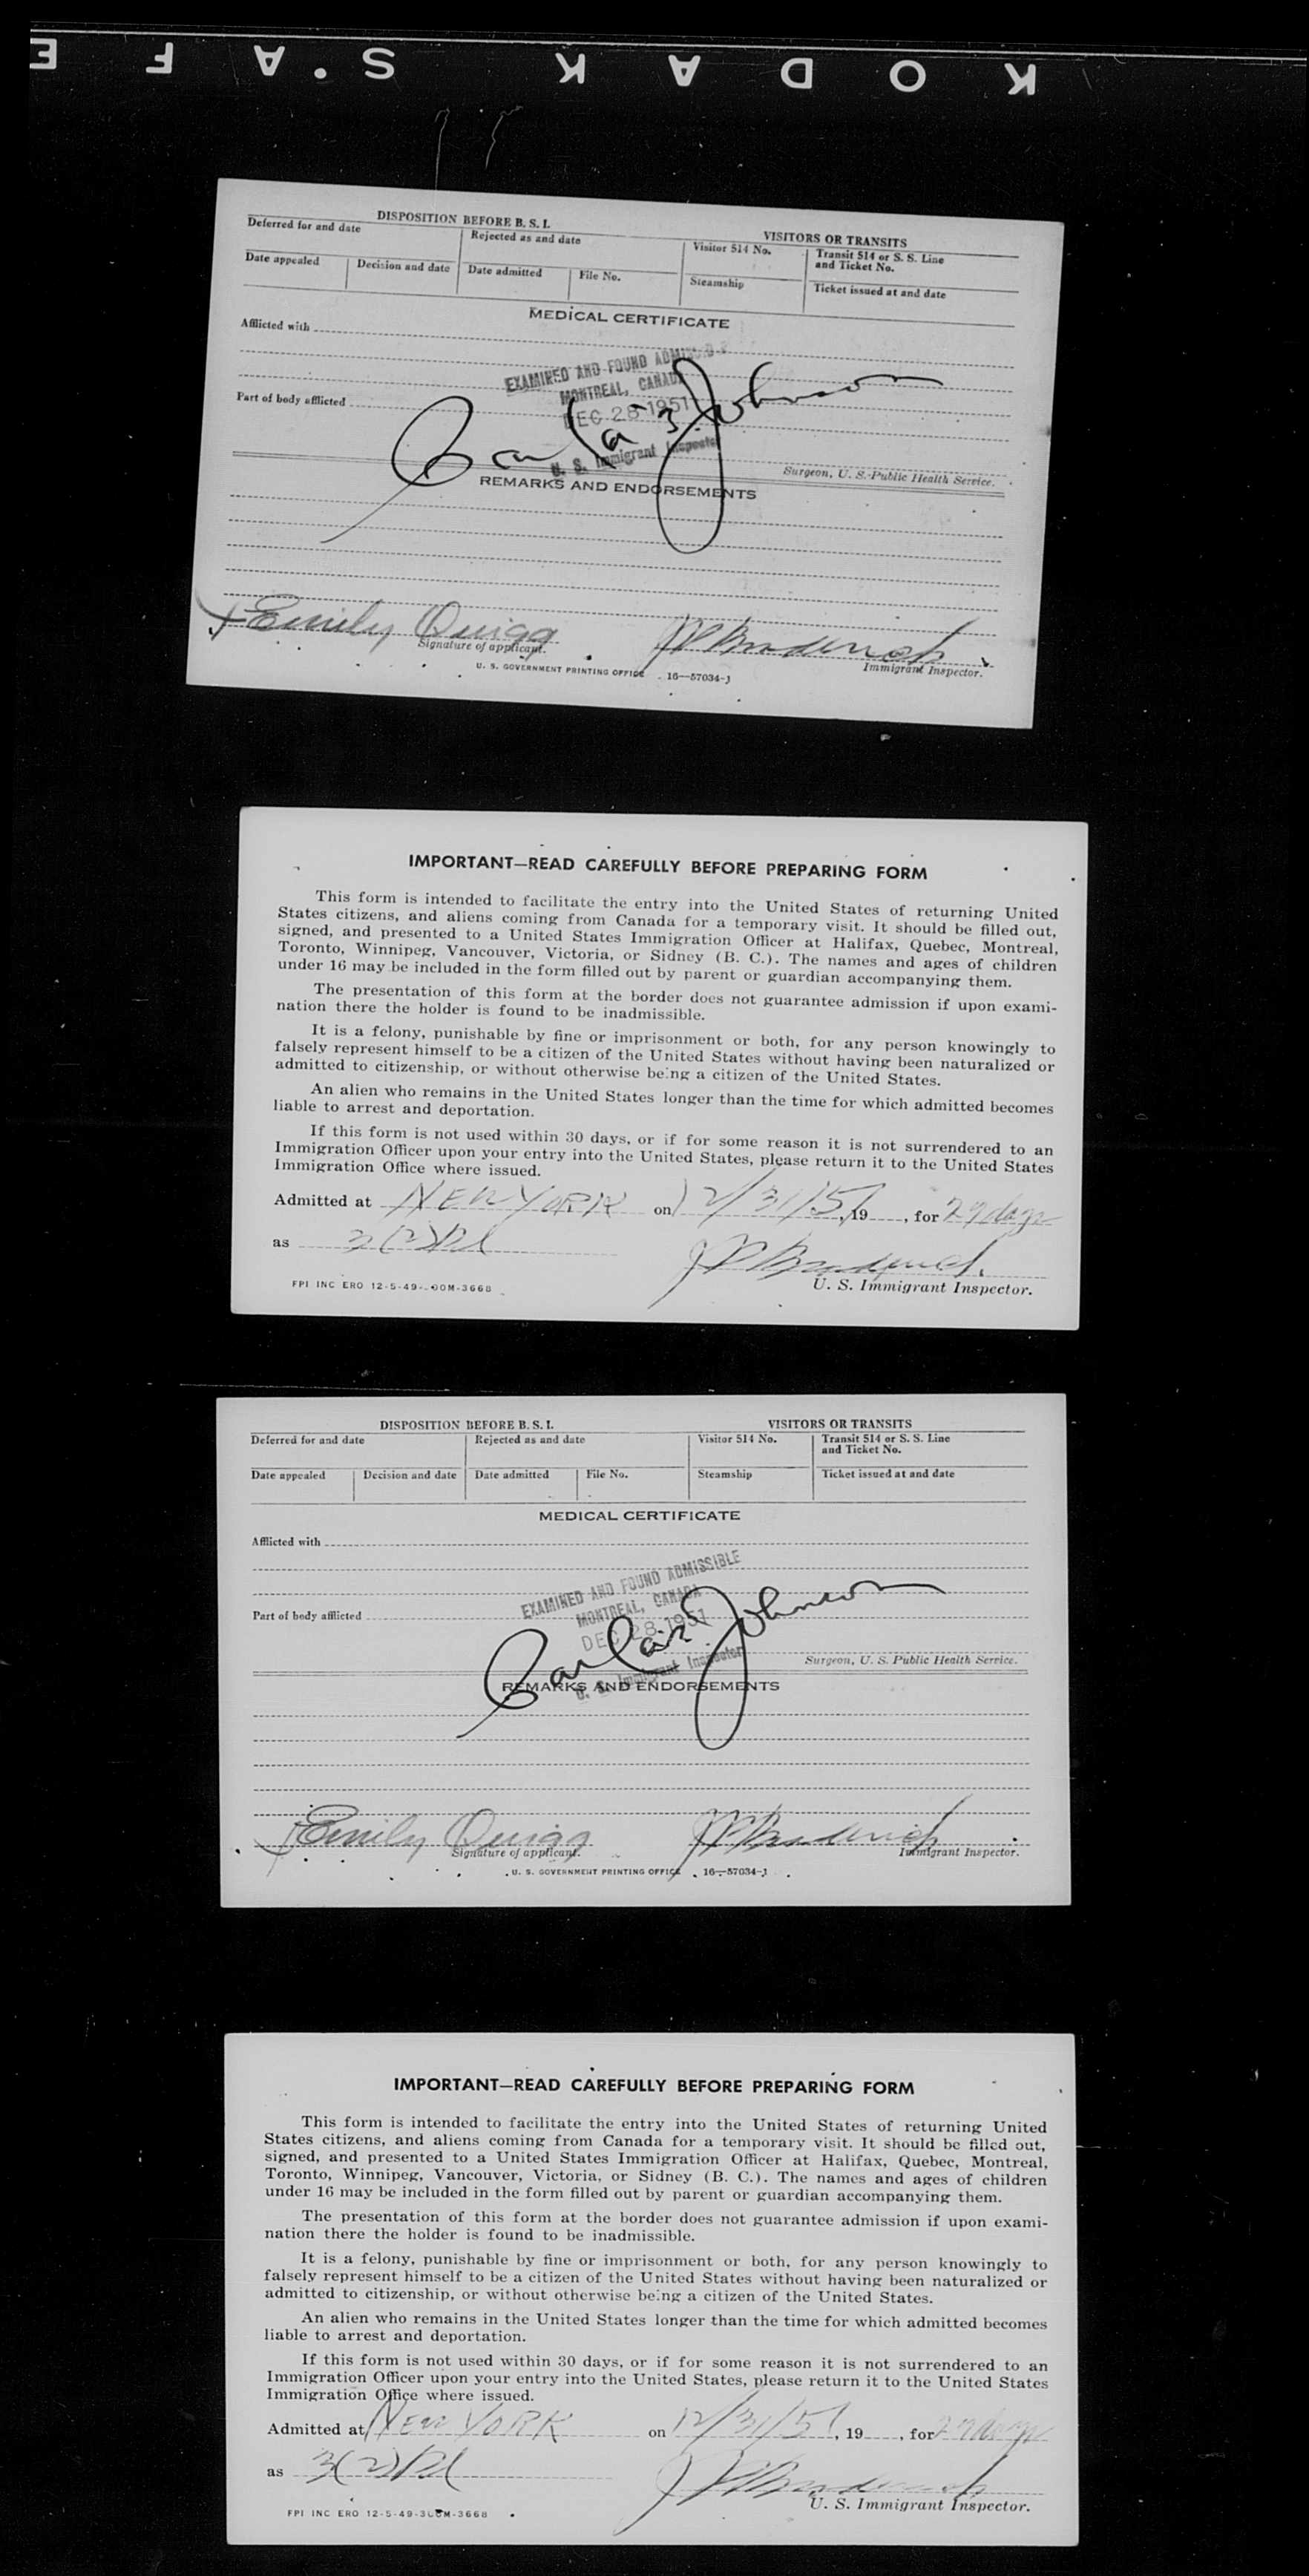 KODAK S.AFE
DISPOSITION BEFORE B. S. I.
VISITORS OR TRANSITS
Deferred for and date
Rejected as and date
Visitor 514 No.
Transit 514 or S. S. Line
and Ticket No.
Date appealed
Decision and date
Date admitted
File No.
Steamship
Ticket issued at and date
MEDICAL CERTIFICATE
Afflicted with
EXAMINED AND FOUND
MONTREAL, CANADA
DEC 28 1951
Part of body afflicted
Johnson
U. S. Immigrant Inspector
Surgeon, U. S. Public Health Service.
REMARKS AND ENDORSEMENTS
Emily Quigg
Signature of applicant.
Immigrant Inspector.
U. S. GOVERNMENT PRINTING OFFICE 16—57034-1
IMPORTANT—READ CAREFULLY BEFORE PREPARING FORM
This form is intended to facilitate the entry into the United States of returning United
States citizens, and aliens coming from Canada for a temporary visit. It should be filled out,
signed, and presented to a United States Immigration Officer at Halifax, Quebec, Montreal,
Toronto, Winnipeg, Vancouver, Victoria, or Sidney (B. C.). The names and ages of children
under 16 may be included in the form filled out by parent or guardian accompanying them.
The presentation of this form at the border does not guarantee admission if upon exami-
nation there the holder is found to be inadmissible.
It is a felony, punishable by fine or imprisonment or both, for any person knowingly to
falsely represent himself to be a citizen of the United States without having been naturalized or
admitted to citizenship, or without otherwise being a citizen of the United States.
An alien who remains in the United States longer than the time for which admitted becomes
liable to arrest and deportation.
If this form is not used within 30 days, or if for some reason it is not surrendered to an
Immigration Officer upon your entry into the United States, please return it to the United States
Immigration Office where issued.
Admitted at NEW YORK on 12/31/51, 19 , for 29 days
as 3(2)
U. S. Immigrant Inspector.
FPI INC ERO 12-5-49- 00M-3668
DISPOSITION BEFORE B. S. I.
VISITORS OR TRANSITS
Deferred for and date
Rejected as and date
Visitor 514 No.
Transit 514 or S. S. Line
and Ticket No.
Date appealed
Decision and date
Date admitted
File No.
Steamship
Ticket issued at and date
MEDICAL CERTIFICATE
Afflicted with
EXAMINED AND FOUND ADMISSIBLE
MONTREAL, CANADA
DEC 28 1951
Part of body afflicted
Johnson
U. S. Immigrant Inspector
Surgeon, U. S. Public Health Service.
REMARKS AND ENDORSEMENTS
Emily Quigg
Signature of applicant.
Immigrant Inspector.
U. S. GOVERNMENT PRINTING OFFICE 16—57034-1
IMPORTANT—READ CAREFULLY BEFORE PREPARING FORM
This form is intended to facilitate the entry into the United States of returning United
States citizens, and aliens coming from Canada for a temporary visit. It should be filled out,
signed, and presented to a United States Immigration Officer at Halifax, Quebec, Montreal,
Toronto, Winnipeg, Vancouver, Victoria, or Sidney (B. C.). The names and ages of children
under 16 may be included in the form filled out by parent or guardian accompanying them.
The presentation of this form at the border does not guarantee admission if upon exami-
nation there the holder is found to be inadmissible.
It is a felony, punishable by fine or imprisonment or both, for any person knowingly to
falsely represent himself to be a citizen of the United States without having been naturalized or
admitted to citizenship, or without otherwise being a citizen of the United States.
An alien who remains in the United States longer than the time for which admitted becomes
liable to arrest and deportation.
If this form is not used within 30 days, or if for some reason it is not surrendered to an
Immigration Officer upon your entry into the United States, please return it to the United States
Immigration Office where issued.
Admitted at NEW YORK on 12/31/51, 19 , for 29 days
as 3(2)
U. S. Immigrant Inspector.
FPI INC ERO 12-5-49-300M-3668